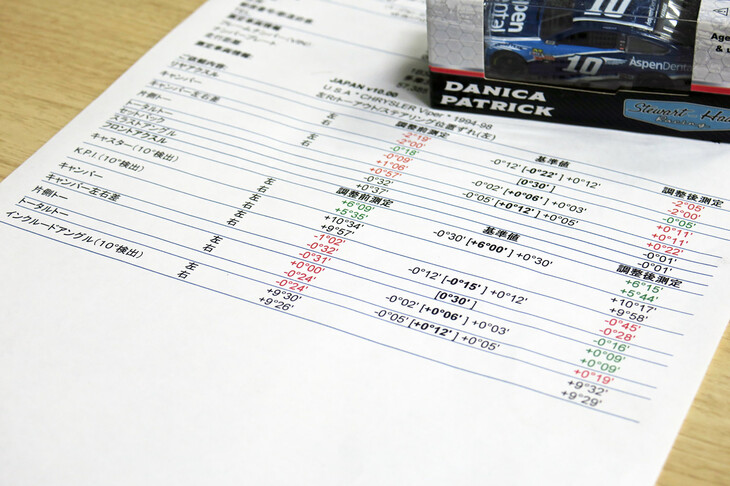 DANICA
PATRICK
AspenDental
10
10
Stewart-Haas
Racing
JAPAN v10.00
U.S.A • CHRYSLER Viper * 1994-98
左Rトーアウト/ステアリング位置ずれ(左)
リヤアクスル 調整前測定 基準値 調整後測定
キャンバー 左 -2°19' -0°12' [-0°22'] +0°12' -2°05'
右 -2°00' -2°00'
キャンバー左右差 -0°18' [0°30'] -0°05'
片側トー 左 -0°09' -0°02' [+0°06'] +0°03' +0°11'
右 +1°06' +0°11'
トータルトー +0°57' -0°05' [+0°12'] +0°05' +0°22'
セットバック -0°32' -0°01'
スラストアングル +0°37' -0°01'
フロントアクスル 調整前測定 基準値 調整後測定
キャスター(10°検出) 左 +6°09' -0°30' [+6°00'] +0°30' +6°15'
右 +5°35' +5°44'
K.P.I.(10°検出) 左 +10°34' +10°17'
右 +9°57' +9°58'
キャンバー 左 -1°02' -0°12' [-0°15'] +0°12' -0°45'
右 -0°32' -0°28'
キャンバー左右差 -0°31' [0°30'] -0°16'
片側トー 左 +0°00' -0°02' [+0°06'] +0°03' +0°09'
右 -0°24' +0°09'
トータルトー -0°24' -0°05' [+0°12'] +0°05' +0°19'
インクルードアングル(10°検出) 左 +9°30' +9°32'
右 +9°26' +9°29'